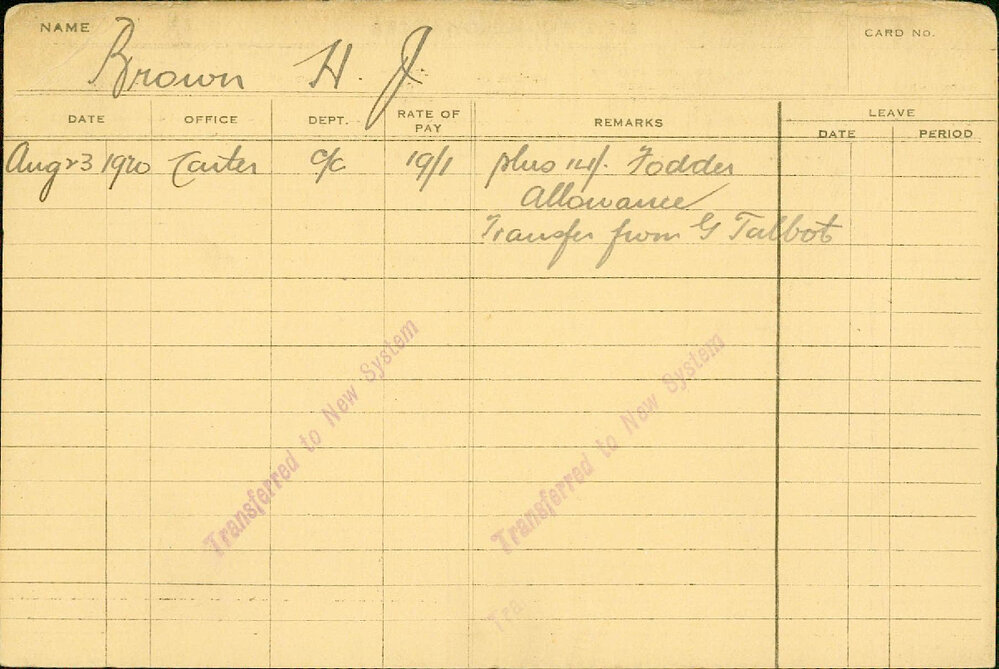 NAME
CARD No.
Brown H. J.
DATE OFFICE DEPT. RATE OF PAY REMARKS LEAVE
DATE PERIOD
Aug 23 1920 Carter c/c 19/1 plus 14/- Fodder
Allowance
Transfer from G Talbot
Transferred to New System
Transferred to New System
Tra